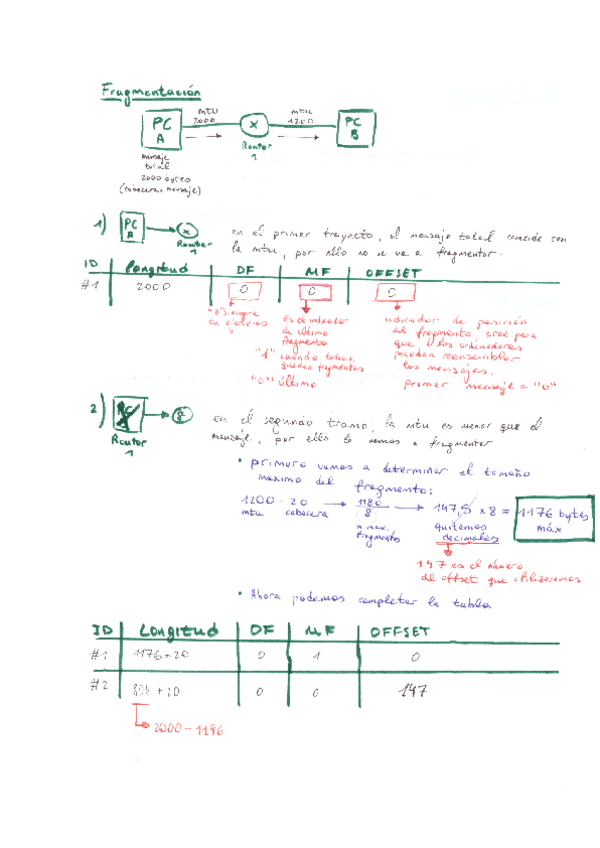 Fragmentación
mtu 2000
mtu 1200
PC A
X
PC B
Router 1
mensaje total 2000 bytes
(cabecera+mensaje)
1) PC A
x
Router 1
en el primer trayecto, el mensaje total coincide con
la mtu, por ello no se va a fragmentar.
ID Longitud DF MF OFFSET
#1 2000 0 0 0
Es el indicador
de último
fragmento
"1" cuando todavía
quedan fragmentos
"0" último
indicador de posición
del fragmento sirve para
que los ordinadores
puedan reensamblar
los mensajes.
primer mensaje = "0"
2)
Router 1
en el segundo tramo, la mtu es menor que el
mensaje, por ello lo vamos a fragmentar
• primero vamos a determinar el tamaño
maximo del fragmento:
1200 - 20
mtu cabecera
1180
8
n max.
fragmentos
147,5 x 8 =
quitamos
decimales
1176 bytes
máx
147 es el número
del offset que utilizaremos
• Ahora podemos completar la tabla
ID Longitud DF MF OFFSET
#1 1176+20 0 1 0
#2 804 + 20 0 0 147
2000 - 1196